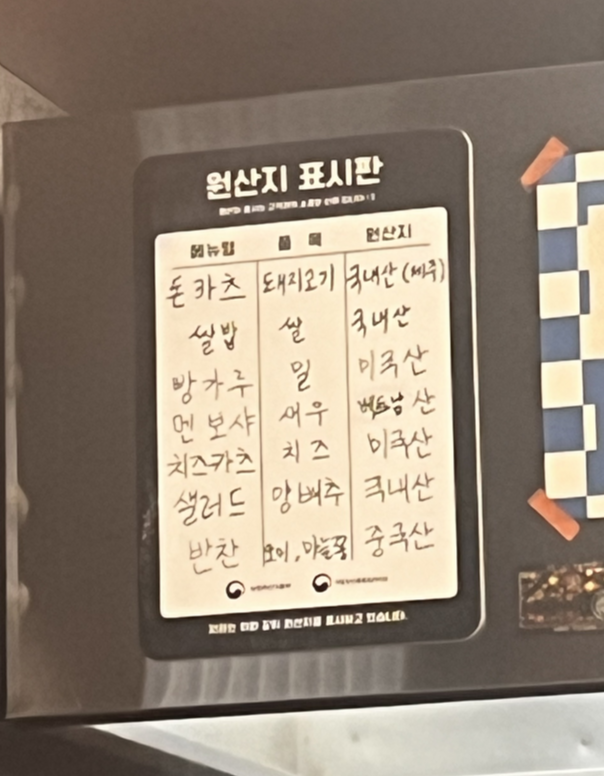 원산지 표시판
메뉴명 품 목 원산지
돈카츠 돼지고기 국내산 (제주)
쌀밥 쌀 국내산
빵가루 밀 미국산
멘보샤 새우 베트남 산
치즈카츠 치즈 미국산
샐러드 양배추 국내산
반찬 오이, 마늘쫑 중국산
원산지를 표시하고 있습니다.